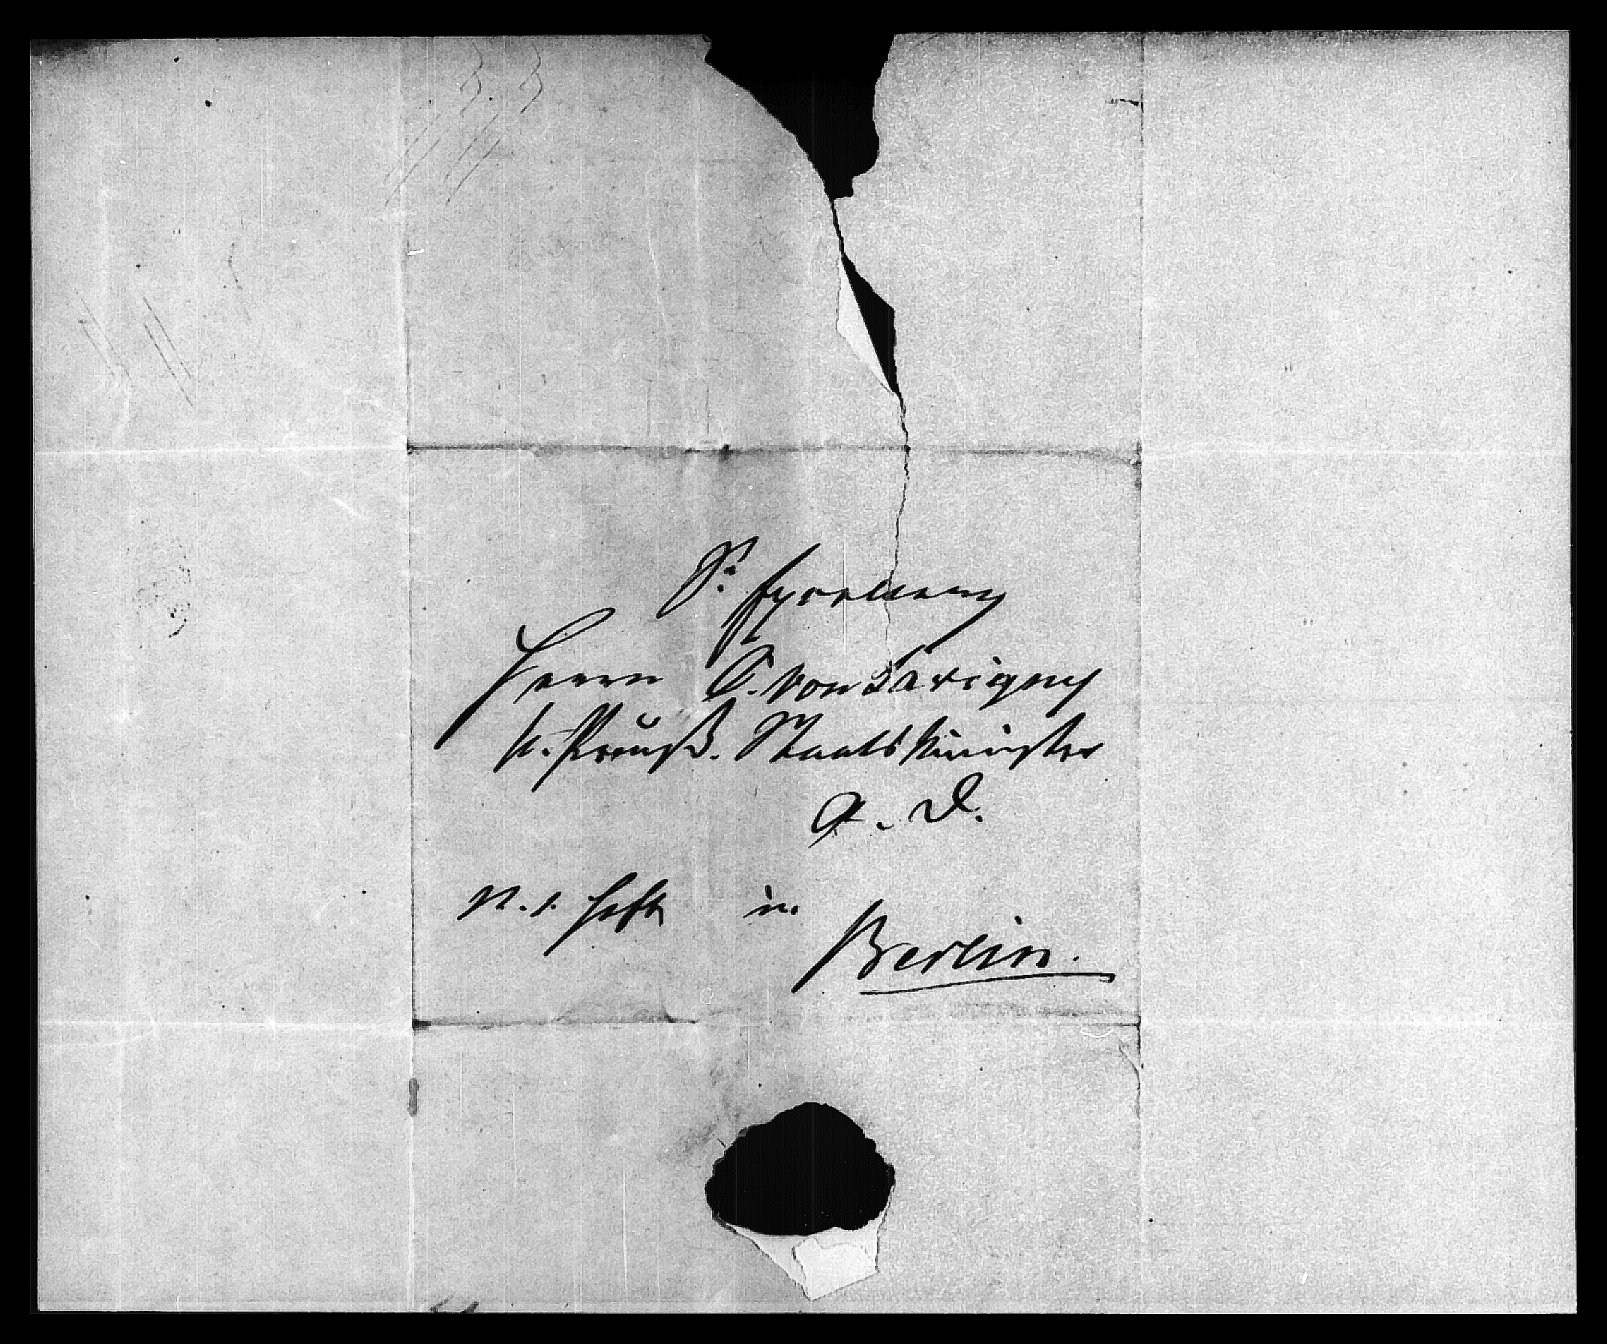 Sr Excellenz
Herrn C. von Savigny
K. Preuß. Staatsminister
a. D.
N. 1. Heft in
Berlin.